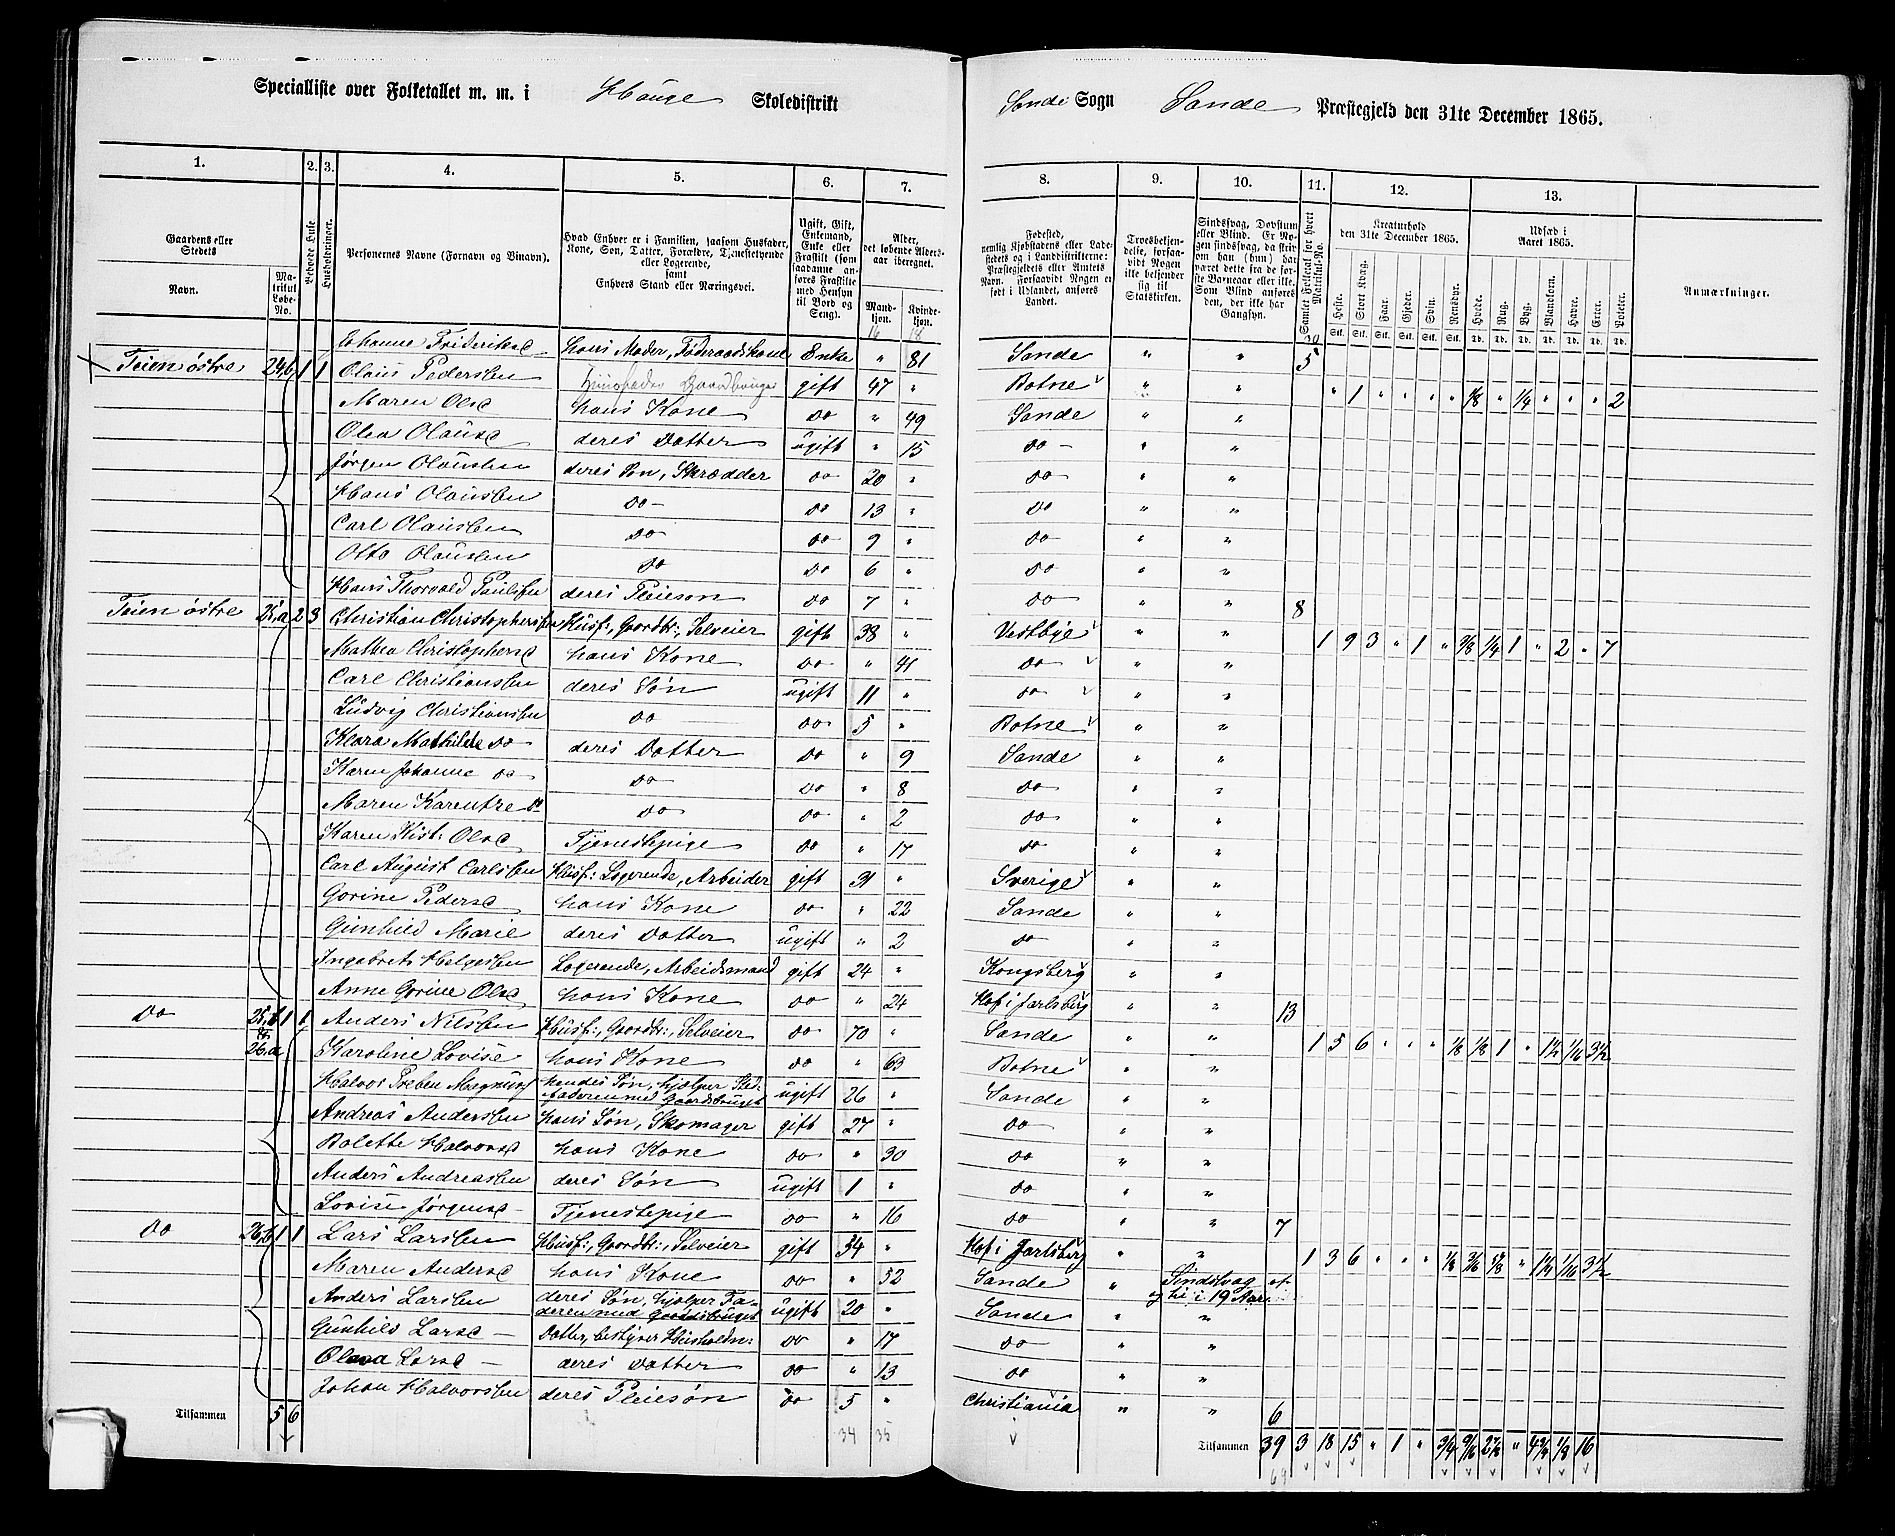 Specialliste over Folketallet m. m. i Hauge Skoledistrikt Sande Sogn Sande Præstegjeld den 31te December 1865.
1. 2. 3. 4. 5. 6. 7. 8. 9. 10. 11. 12. 13.
Gaardens eller Stedets Navn. Matrikul Løbe-No. Beboede Huse Husholdninger. Personernes Navne (Fornavn og Tilnavn). Hvad Enhver er i Familien, saasom Husfader, Kone, Søn, Datter, Forældre, Tjenestetyende eller Logerende, samt Enhvers Stand eller Næringsvei. Alder, det løbende Aldersaar iberegnet. Mandkjøn. Kvindekjøn.
Troesbekjendelse, forsaavidt Nogen ikke bekjender sig til Statskirken. Samlet Folketal for hvert Matrikul-No. Kreaturhold den 31te December 1865. Udsæd i Aaret 1865. Anmærkninger.
Heste. Stort Kvæg. Faar. Gjeder. Svin. Rensdyr. Hvede. Rug. Byg. Blandkorn. Havre. Erter. Poteter.
16 18
Johanne Fredriksd hans Moder, Føderaadskone Enke " 81 Sande " " 5
Teien østre 24,b 1 1 Olaus Pedersen Huusfader Gaardbruger gift 47 " Botne " " " 1 " " " " 1/8 " 1/4 " " " 2
Maren Olsd hans Kone do " 49 Sande " "
Olea Olausd deres Datter ugift " 15 do " "
Jørgen Olaussen deres Søn, Skrædder do 20 " do " "
Hans Olaussen do do 13 " do " "
Carl Olaussen do do 9 " do " "
Otto Olaussen do do 6 " do " "
Hans Thorvald Paulsen deres Pleiesøn do 7 " do " " 8
Teien østre 25,a 2 3 Christian Christophersen Husf:, Gaardbr:, Selveier gift 38 " Vestbye " " 1 9 3 " 1 " 3/8 1/4 1 " 2 " 7
Mathea Christophersd hans Kone do " 41 do " "
Carl Christiansen deres Søn ugift 11 " do " "
Ludvig Christiansen do do 5 " Botne " "
Klara Mathilde do deres Datter do " 9 Sande " "
Karen Johanne do do do " 8 do " "
Maren Karentze do do do " 2 do " "
Karen Kist: Olsd Tjenestepige do " 17 do " "
Carl August Carlsen Husf: Logerende, Arbeider gift 31 " Sverige " "
Gorine Pedersd hans Kone do " 22 Sande " "
Gunhild Marie deres Datter ugift " 2 do " "
Ingebret Helgesen Logerende, Arbeidsmand gift 24 " Kongsberg " "
Anne Gorine Olsd hans Kone do " 24 Hof i Jarlsberg " " 13
do 25,b 1 1 Anders Nilsen Husf:, Gaardbr:, Selveier do 70 " Sande " " 1 5 6 " " " 1/8 1/8 1 " 1½ 1/16 3½
26,a Karoline Lovise hans Kone do " 63 Botne " "
Halvor Preben Magnus hendes Søn, hjælper Stedfaderen med Gaardsbruget ugift 26 " Sande " "
Andreas Andersen hans Søn, Skomager gift 27 " do " "
Bolette Halvorsd hans Kone do " 30 do " "
Anders Andreassen deres Søn ugift 1 " do " "
Lovise Jørgensd Tjenestepige do " 16 do " " 7
do 26,b 1 1 Lars Larsen Husf:, Gaardbr:, Selveier gift 34 " Hof i Jarlsberg " " 1 3 6 " " " 1/8 3/16 5/8 " 1¼ 1/16 3½
Maren Andersd hans Kone do " 52 Sande " Sindsvag
Anders Larsen deres Søn, hjælper Faderen med Gaardsbruget ugift 20 " Sande " "
Gunhild Larsd Datter, bestyrer Husholdn: do " 17 do " "
Olava Larsd deres Datter do " 13 do " "
Johan Halvorsen deres Pleiesøn do 5 " Christiania " " 6
Tilsammen 5 6 34 35 Tilsammen 39 3 18 15 " 1 " 3/4
69